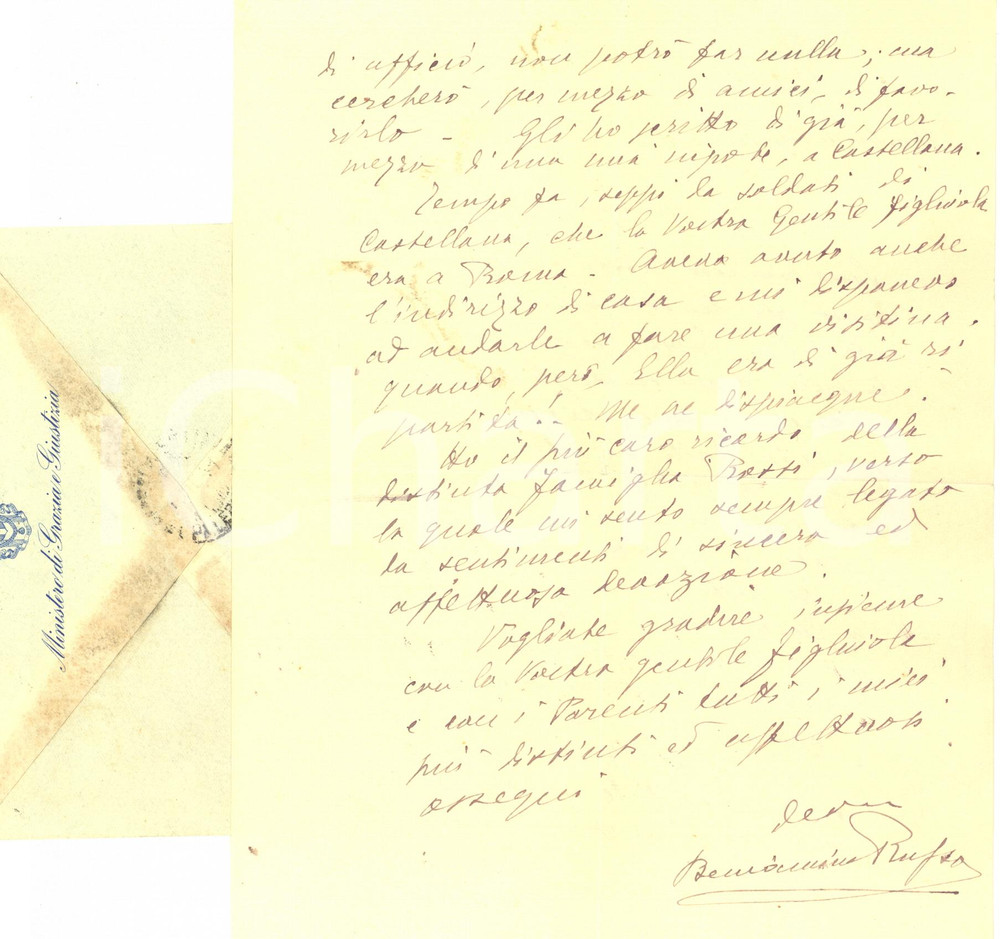 di ufficio, non potrò far nulla; ma
cercherò, per mezzo di amici, di favo-
rirlo - Gli ho scritto di già, per
mezzo di una mia nipote, a Castellana.
Tempo fa, seppi da soldati di
Castellana, che la Vostra Gentile figliuola
era a Roma - Aveva avuto anche
l'indirizzo di casa e mi disponevo
ad andarle a fare una visitina.
quando, però, Ella era di già ri
partita.. Me ne dispiacque.
Ho il più caro ricordo della
distinta famiglia Rossi, verso
la quale mi sento sempre legato
da sentimenti di sincera ed
affettuosa devozione.
Vogliate gradire insieme
con la Vostra gentile figliuola
e con i Parenti tutti i miei
più distinti ed affettuosi
ossequi
Beniamino Russo
Ministero di Grazia e Giustizia
iCharta